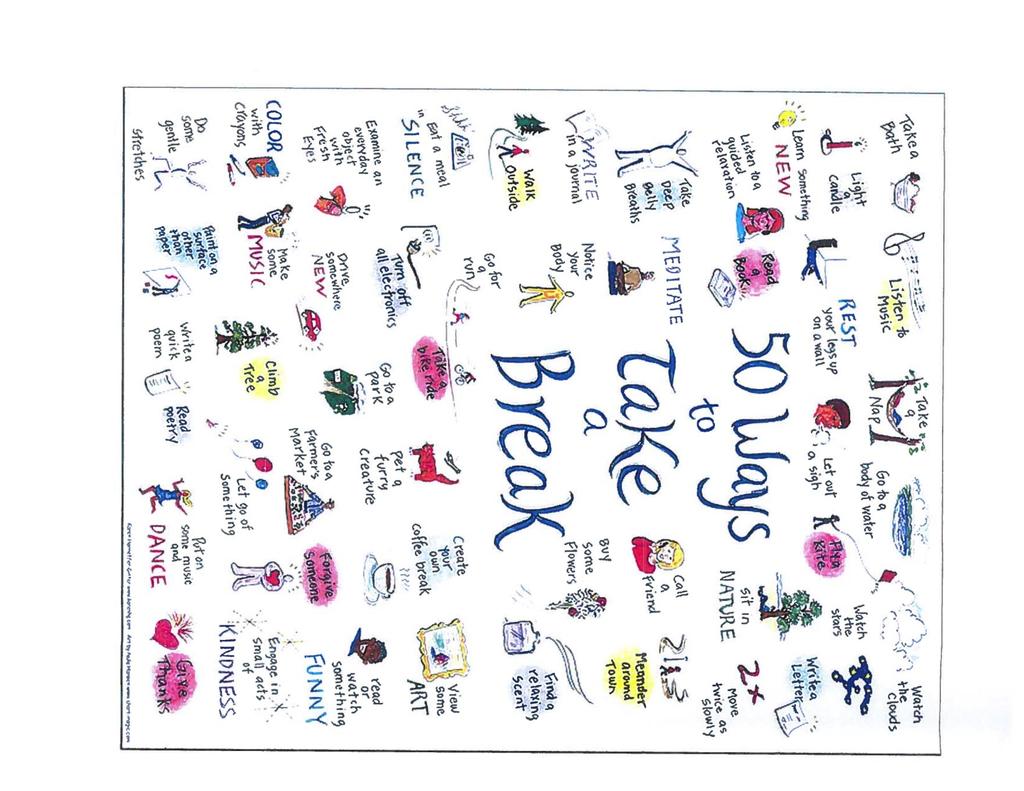 Take a
Bath
Listen to
Music
Take
a
Nap
Go to a
body of water
Watch
the
clouds
Light
a
candle
REST
your legs up
on a wall
Let out
a sigh
Fly a
Kite
Watch
the
stars
Learn something
NEW
Read
a
Book
sit in
NATURE
Write a
Letter
Listen to a
guided
relaxation
50 Ways
to
Take
a
Break
2x
Move
twice as
slowly
Take
Deep
Belly
Breaths
MEDITATE
Call
a
Friend
Meander
around
Town
WRITE
in a journal
Notice
your
Body
Buy
some
Flowers
Find a
relaxing
Scent
Walk
outside
Go for
a
run
Take a
bike ride
Eat a meal
in SILENCE
Turn off
all electronics
Go to a
park
Pet a
furry
creature
Create
your
own
coffee break
View
some
ART
Examine an
everyday
object
with
Fresh
Eyes
Drive
somewhere
NEW
Go to a
Farmer's
Market
Forgive
Someone
read or
watch
something
FUNNY
COLOR
with
crayons
Make
some
MUSIC
Climb
a
Tree
Let go of
something
Engage in
small acts
of
KINDNESS
Do
some
gentle
stretches
Paint on a
surface
other
than
paper
Write a
quick
poem
Read
poetry
Put on
some music
and
DANCE
Give
Thanks